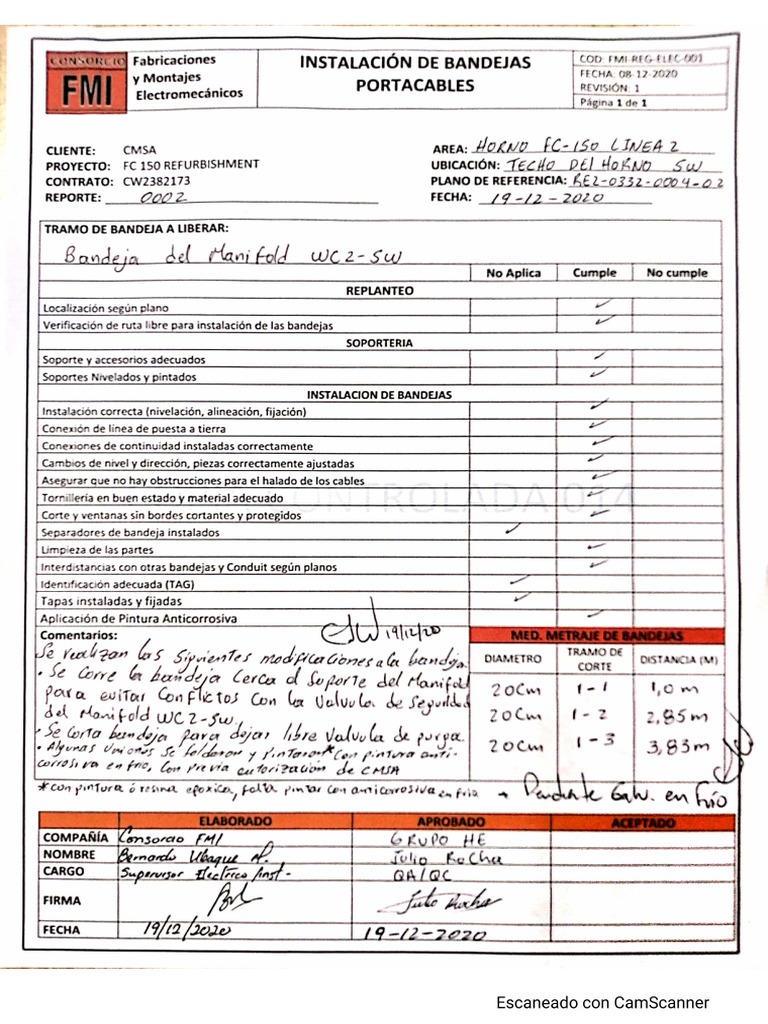 CONSORCIO
FMI
Fabricaciones
y Montajes
Electromecánicos
INSTALACIÓN DE BANDEJAS
PORTACABLES
COD: FMI-REG-ELEC-001
FECHA: 08-12-2020
REVISIÓN: 1
Página 1 de 1
CLIENTE: CMSA
PROYECTO: FC 150 REFURBISHMENT
CONTRATO: CW2382173
REPORTE: 0002
AREA: HORNO FC-150 LINEA 2
UBICACIÓN: TECHO DEL HORNO SW
PLANO DE REFERENCIA: RE2-0332-0004-02
FECHA: 19-12-2020
TRAMO DE BANDEJA A LIBERAR:
Bandeja del Manifold WC2-SW
No Aplica Cumple No cumple
REPLANTEO
Localización según plano ✓
Verificación de ruta libre para instalación de las bandejas ✓
SOPORTERIA
Soporte y accesorios adecuados ✓
Soportes Nivelados y pintados ✓
INSTALACION DE BANDEJAS
Instalación correcta (nivelación, alineación, fijación) ✓
Conexión de línea de puesta a tierra ✓
Conexiones de continuidad instaladas correctamente ✓
Cambios de nivel y dirección, piezas correctamente ajustadas ✓
Asegurar que no hay obstrucciones para el halado de los cables ✓
Tornillería en buen estado y material adecuado ✓
Corte y ventanas sin bordes cortantes y protegidos ✓
Separadores de bandeja instalados ✓
Limpieza de las partes ✓
Interdistancias con otras bandejas y Conduit según planos ✓
Identificación adecuada (TAG) ✓
Tapas instaladas y fijadas ✓
Aplicación de Pintura Anticorrosiva ✓
CONTROLADA 014
Comentarios:
19/12/20
Se realizan las siguientes modificaciones a la bandeja.
• Se corre la bandeja cerca al soporte del Manifold
para evitar conflictos con la valvula de seguridad
del Manifold WC2-SW.
• Se corta bandeja para dejar libre valvula de purga.
• Algunas uniones se soldaron y pintaron* con pintura anti-
corrosiva en frio, con previa autorización de CMSA
*con pintura ó resina epoxica, falta pintar con anticorrosiva en frio → Pendiente Galv. en frío
MED. METRAJE DE BANDEJAS
DIAMETRO TRAMO DE CORTE DISTANCIA (M)
20cm 1-1 1,0 m
20cm 1-2 2,85m
20cm 1-3 3,83m
ELABORADO APROBADO ACEPTADO
COMPAÑÍA Consorcio FMI GRUPO HE
NOMBRE Bernardo Ubaque A. Julio Rocha
CARGO Supervisor Electrico/inst. QA/QC
FIRMA Julio Rocha
FECHA 19/12/2020 19-12-2020
Escaneado con CamScanner